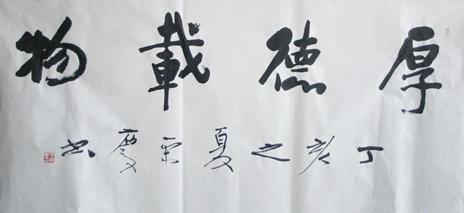 厚德載物
丁亥之夏宗慶書